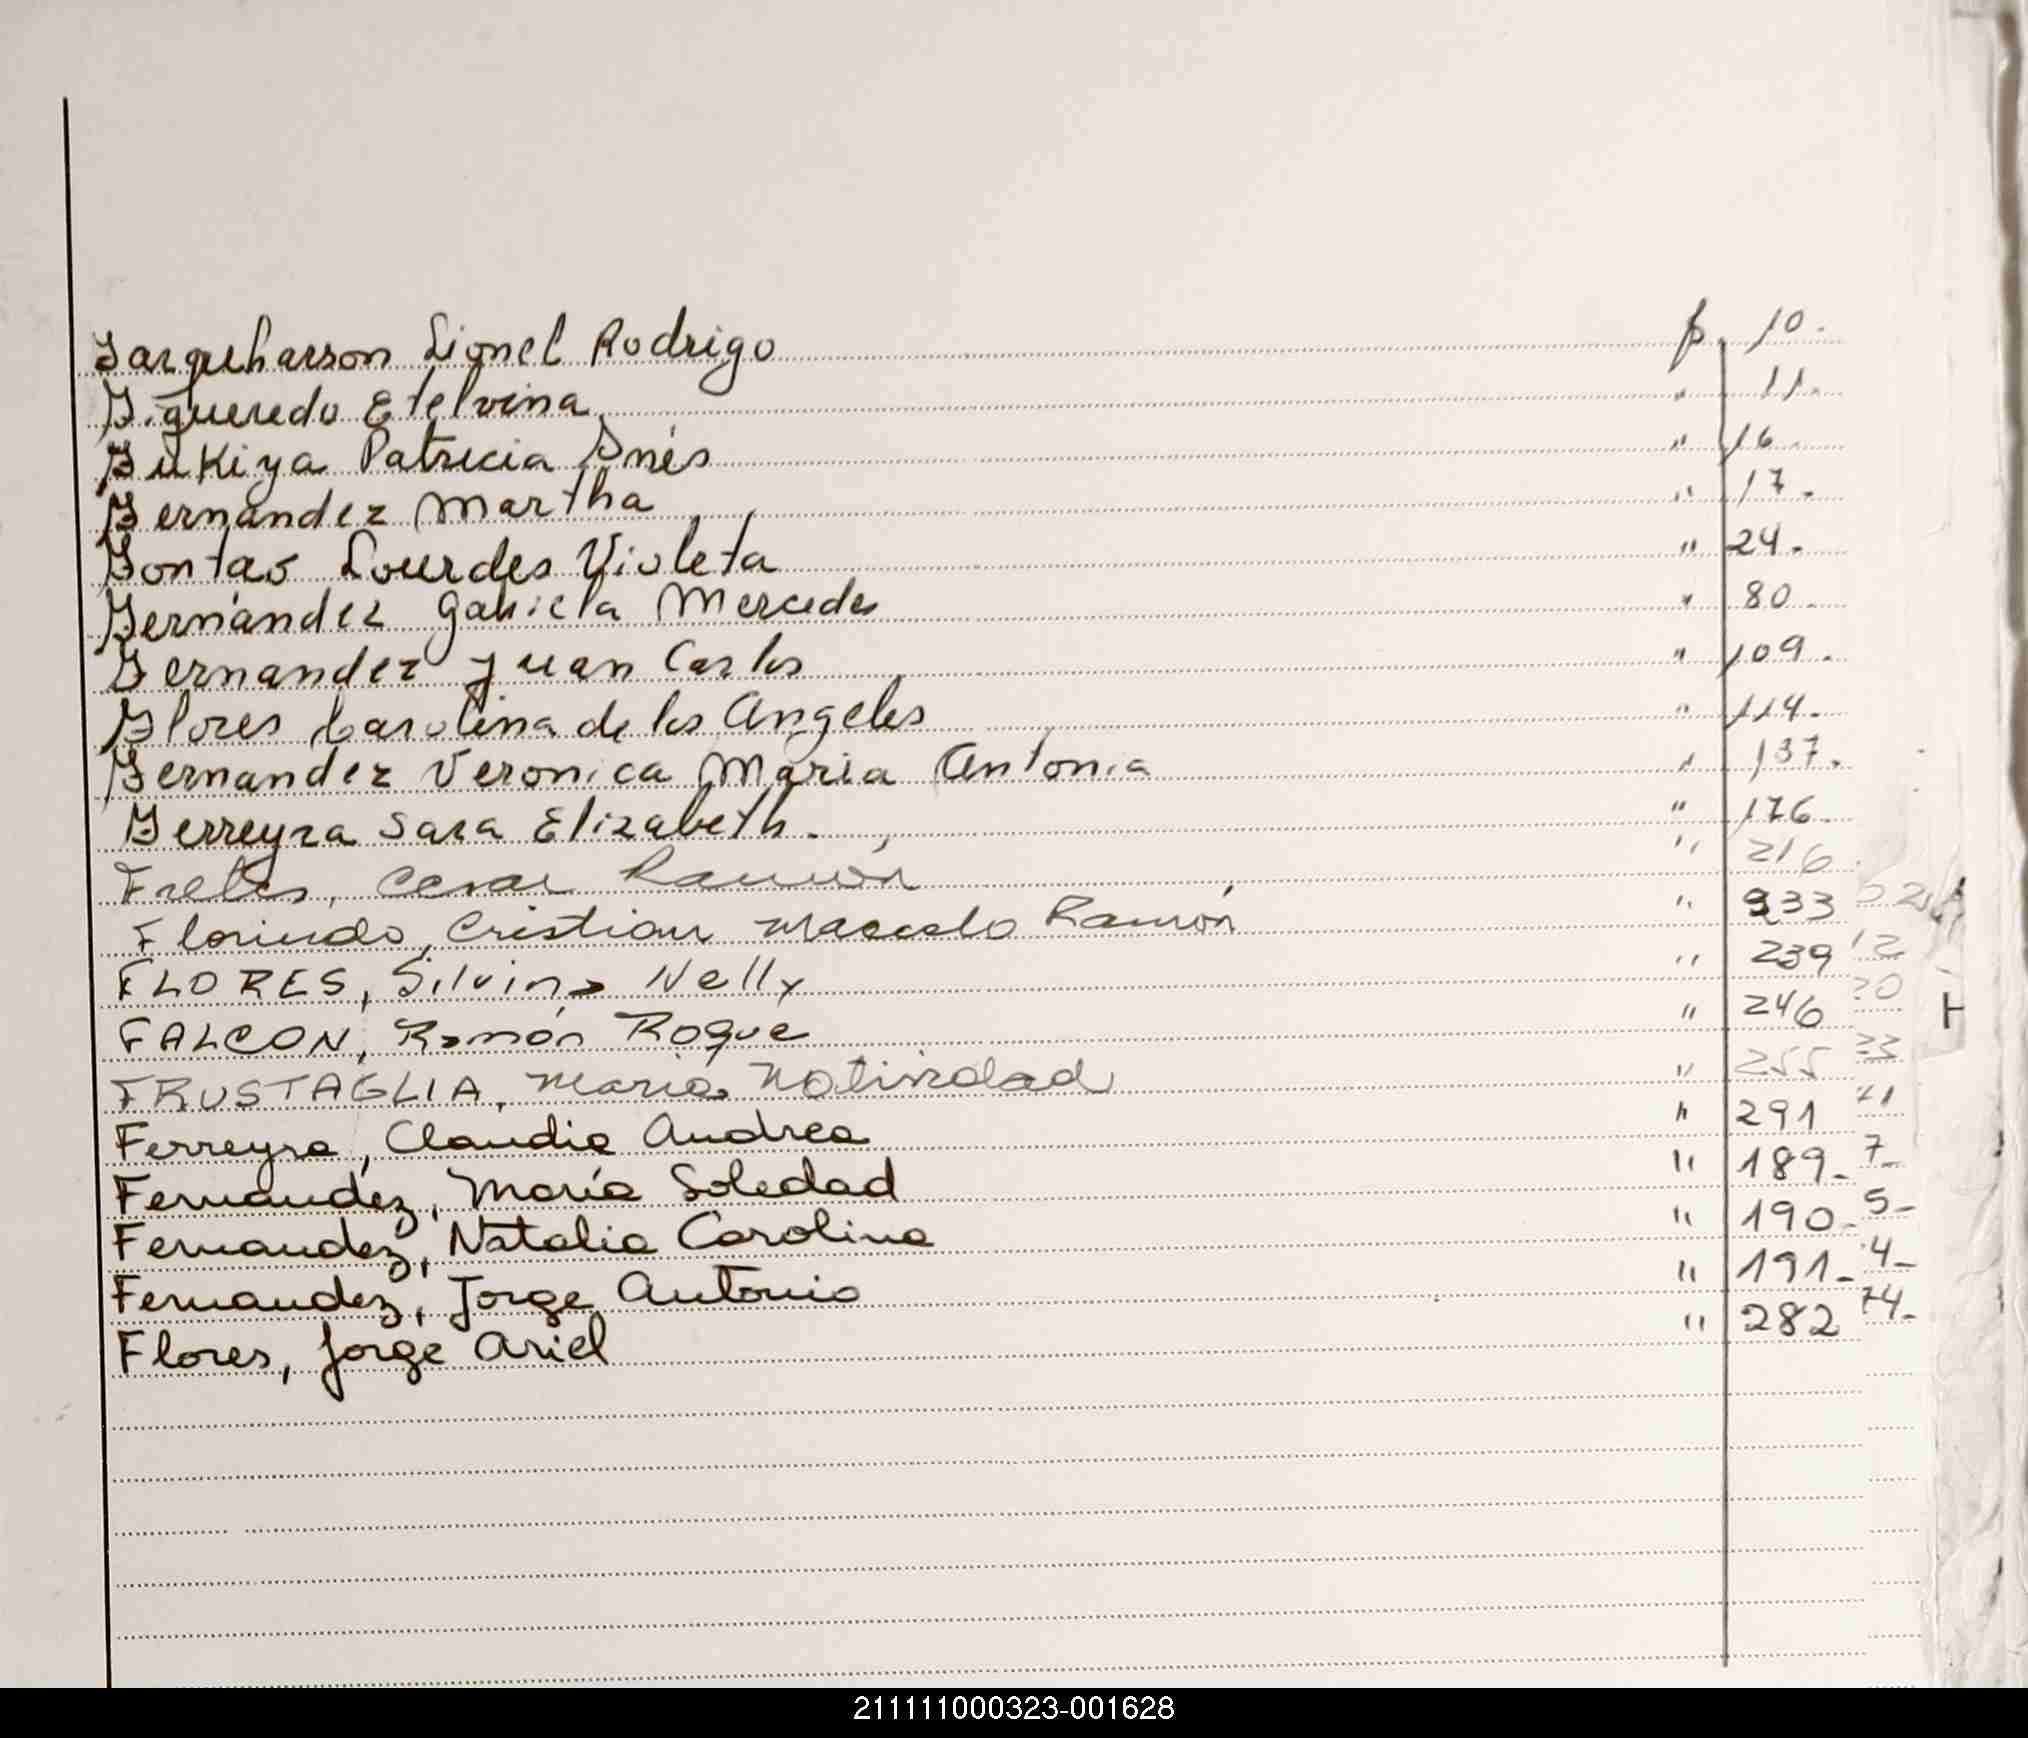 Farquharson Lionel Rodrigo p. 10.
Figueredo Etelvina " 11.
Fukiya Patricia Inés " 16
Fernández Martha " 17.
Fontao Lourdes Violeta " 24.
Fernández Gabriela Mercedes " 80.
Fernandez Juan Carlos " 109.
Flores Carolina de los Angeles " 114.
Fernandez Veronica Maria Antonia " 137.
Ferreyra Sara Elizabeth. " 176.
Fretes, Cesar Ramón " 216.
Florindo, Cristian Marcelo Ramón " 233
FLORES, Silvina Nelly " 239 12
FALCON, Ramón Roque " 246 20
FRUSTAGLIA, Maria Natividad " 255 33
Ferreyra, Claudia Andrea " 291 71
Fernandez, María Soledad " 189- 7-
Fernandez, Natalia Carolina " 190- 5-
Fernandez, Jorge Antonio " 191- 4-
Flores, Jorge Ariel " 282 74-
H
211111000323-001628